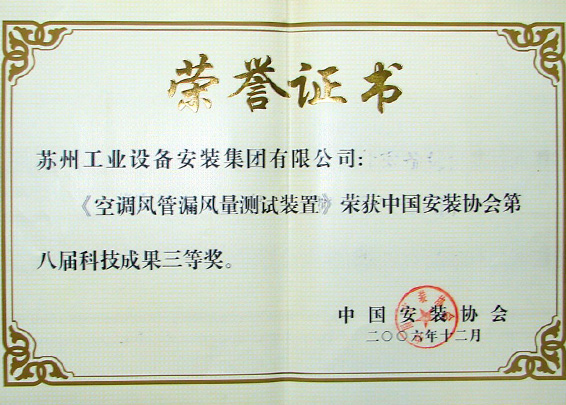 荣誉证书
苏州工业设备安装集团有限公司:
《空调风管漏风量测试装置》荣获中国安装协会第
八届科技成果三等奖。
中国安装协会
二〇〇六年十二月